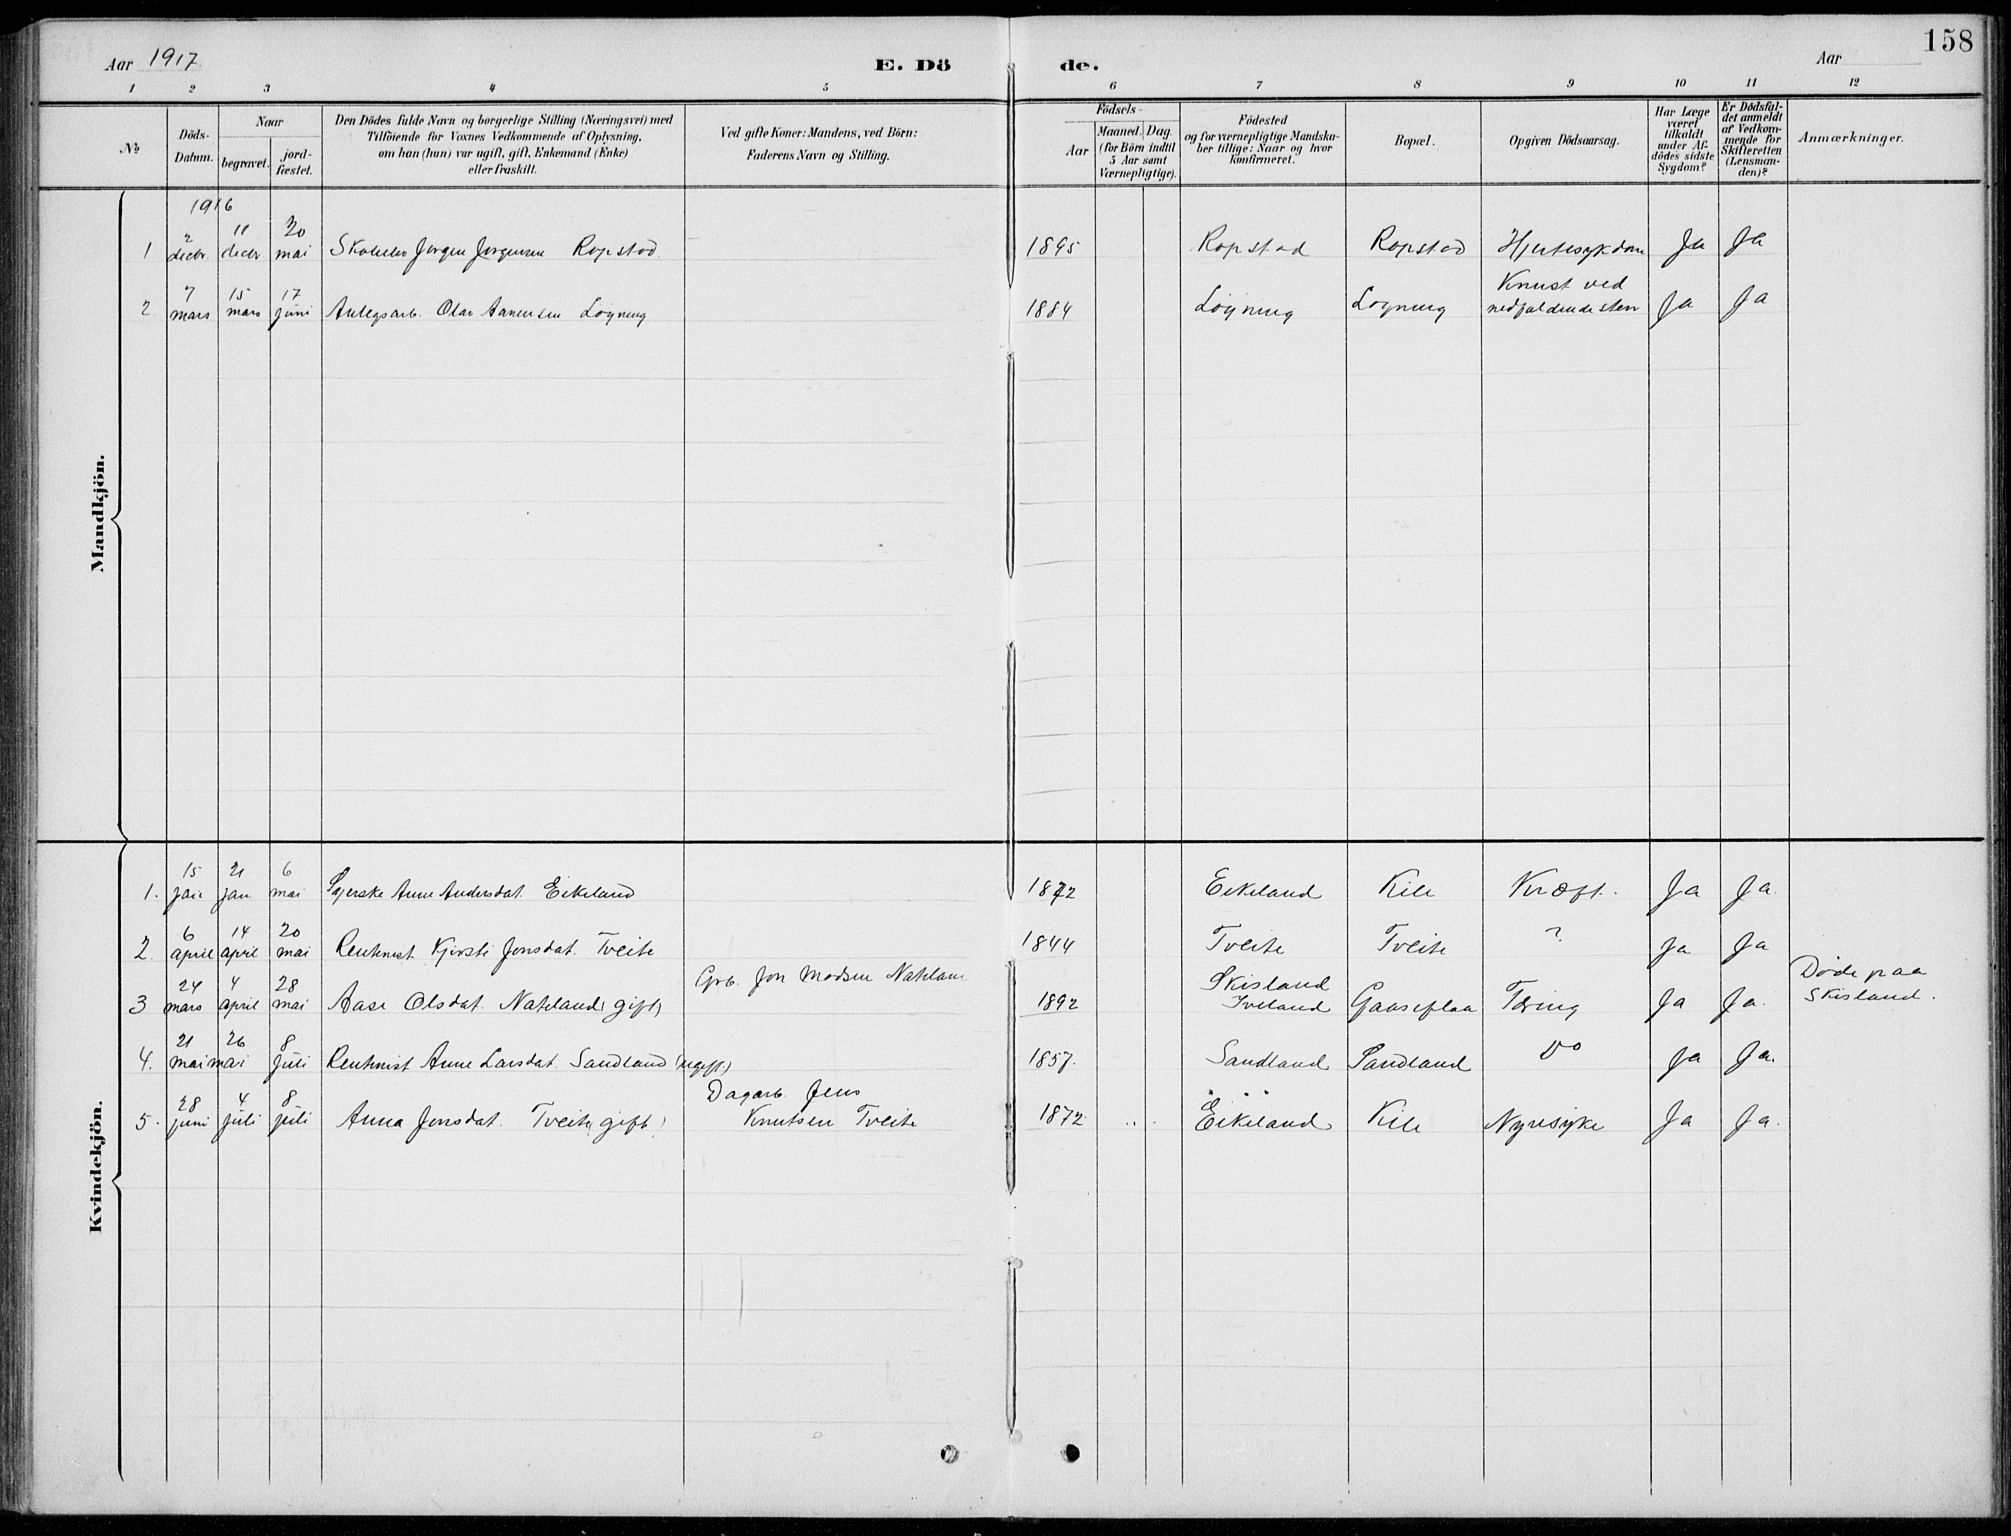 158
Aar 1917 E. Dö de. Aar
1 2 3 4 5 6 7 8 9 10 11 12
№
Döds-Datum.
Naar
begravet.
jord-fæstet.
Den Dödes fulde Navn og borgerlige Stilling (Næringsvei) med
Tilföiende for Voxnes Vedkommende af Oplysning,
om han (hun) var ugift, gift, Enkemand (Enke)
eller fraskilt.
Ved gifte Koner: Mandens, ved Börn:
Faderens Navn og Stilling.
Födsels-
Aar
Maaned. Dag.
(for Börn indtil
5 Aar samt
Værnepligtige).
Födested
og for værnepligtige Mandska-
ber tillige: Naar og hvor
konfirmeret.
Bopæl.
Opgiven Dödsaarsag.
Har Læge
været
tilkaldt
under Af-
dödes sidste
Sygdom?
Er Dödsfal-
det anmeldt
af Vedkom-
mende for
Skifteretten
(Lensman-
den)?
Anmærkninger.
Mandkjön.
1916
2 11 20
1 decbr. decbr mai Jørgen Jørgensen Ropstad 1895 Ropstad Ropstad Hjertesykdom Ja Ja
7 15 17 Knust ved
2 mars mars juni Anlegsarb. Olav Aanensen Løyning 1884 Løyning Løyning nedfaldende sten Ja Ja
Kvindekjön.
15 21 6
1. jan jan mai Syerske Anne Andersdat. Eikeland 1872 Eikeland Kile Kræft. Ja Ja.
6 14 20
2. april april mai Rentenist Kjirsti Jonsdat. Tveite 1844 Tveite Tveite ? Ja Ja
24 4 28 Grb. Jon Madsen Nateland Skisland Døde paa
3 mars april mai Aase Olsdat. Nateland (gift) 1892 Iveland Gaaseflaa Tæring Ja Ja. Skisland.
21 26 8
4. mai mai juli Rentenist Anne Larsdat. Sandland (ugift) 1857. Sandland Sandland Do Ja Ja.
28 4 8 Dagarb. Jens
5. juni juli juli Anna Jonsdat. Tveite (gift) Knutsen Tveite 1872. Eikeland Kile Nyresyke Ja Ja.